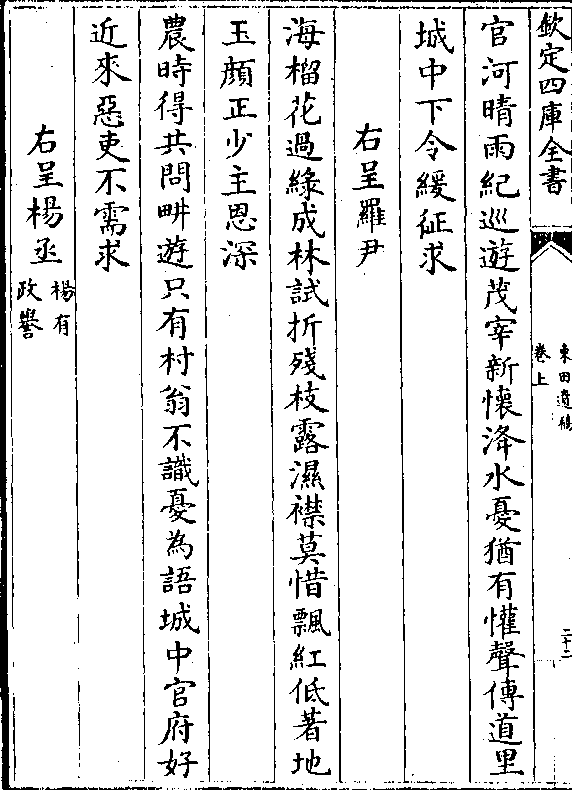 欽定四庫全書
東田遺稿
卷上
二十二
官河晴雨紀巡遊茂宰新懷洚水憂猶有懽聲傳道里
城中下令緩征求
右呈羅尹
海榴花過緑成林試折殘枝露濕襟莫惜飄紅低著地
玉顔正少主恩深
農時得共問畊遊只有村翁不識憂為語城中官府好
近來惡吏不需求
右呈楊丞
楊有
政譽